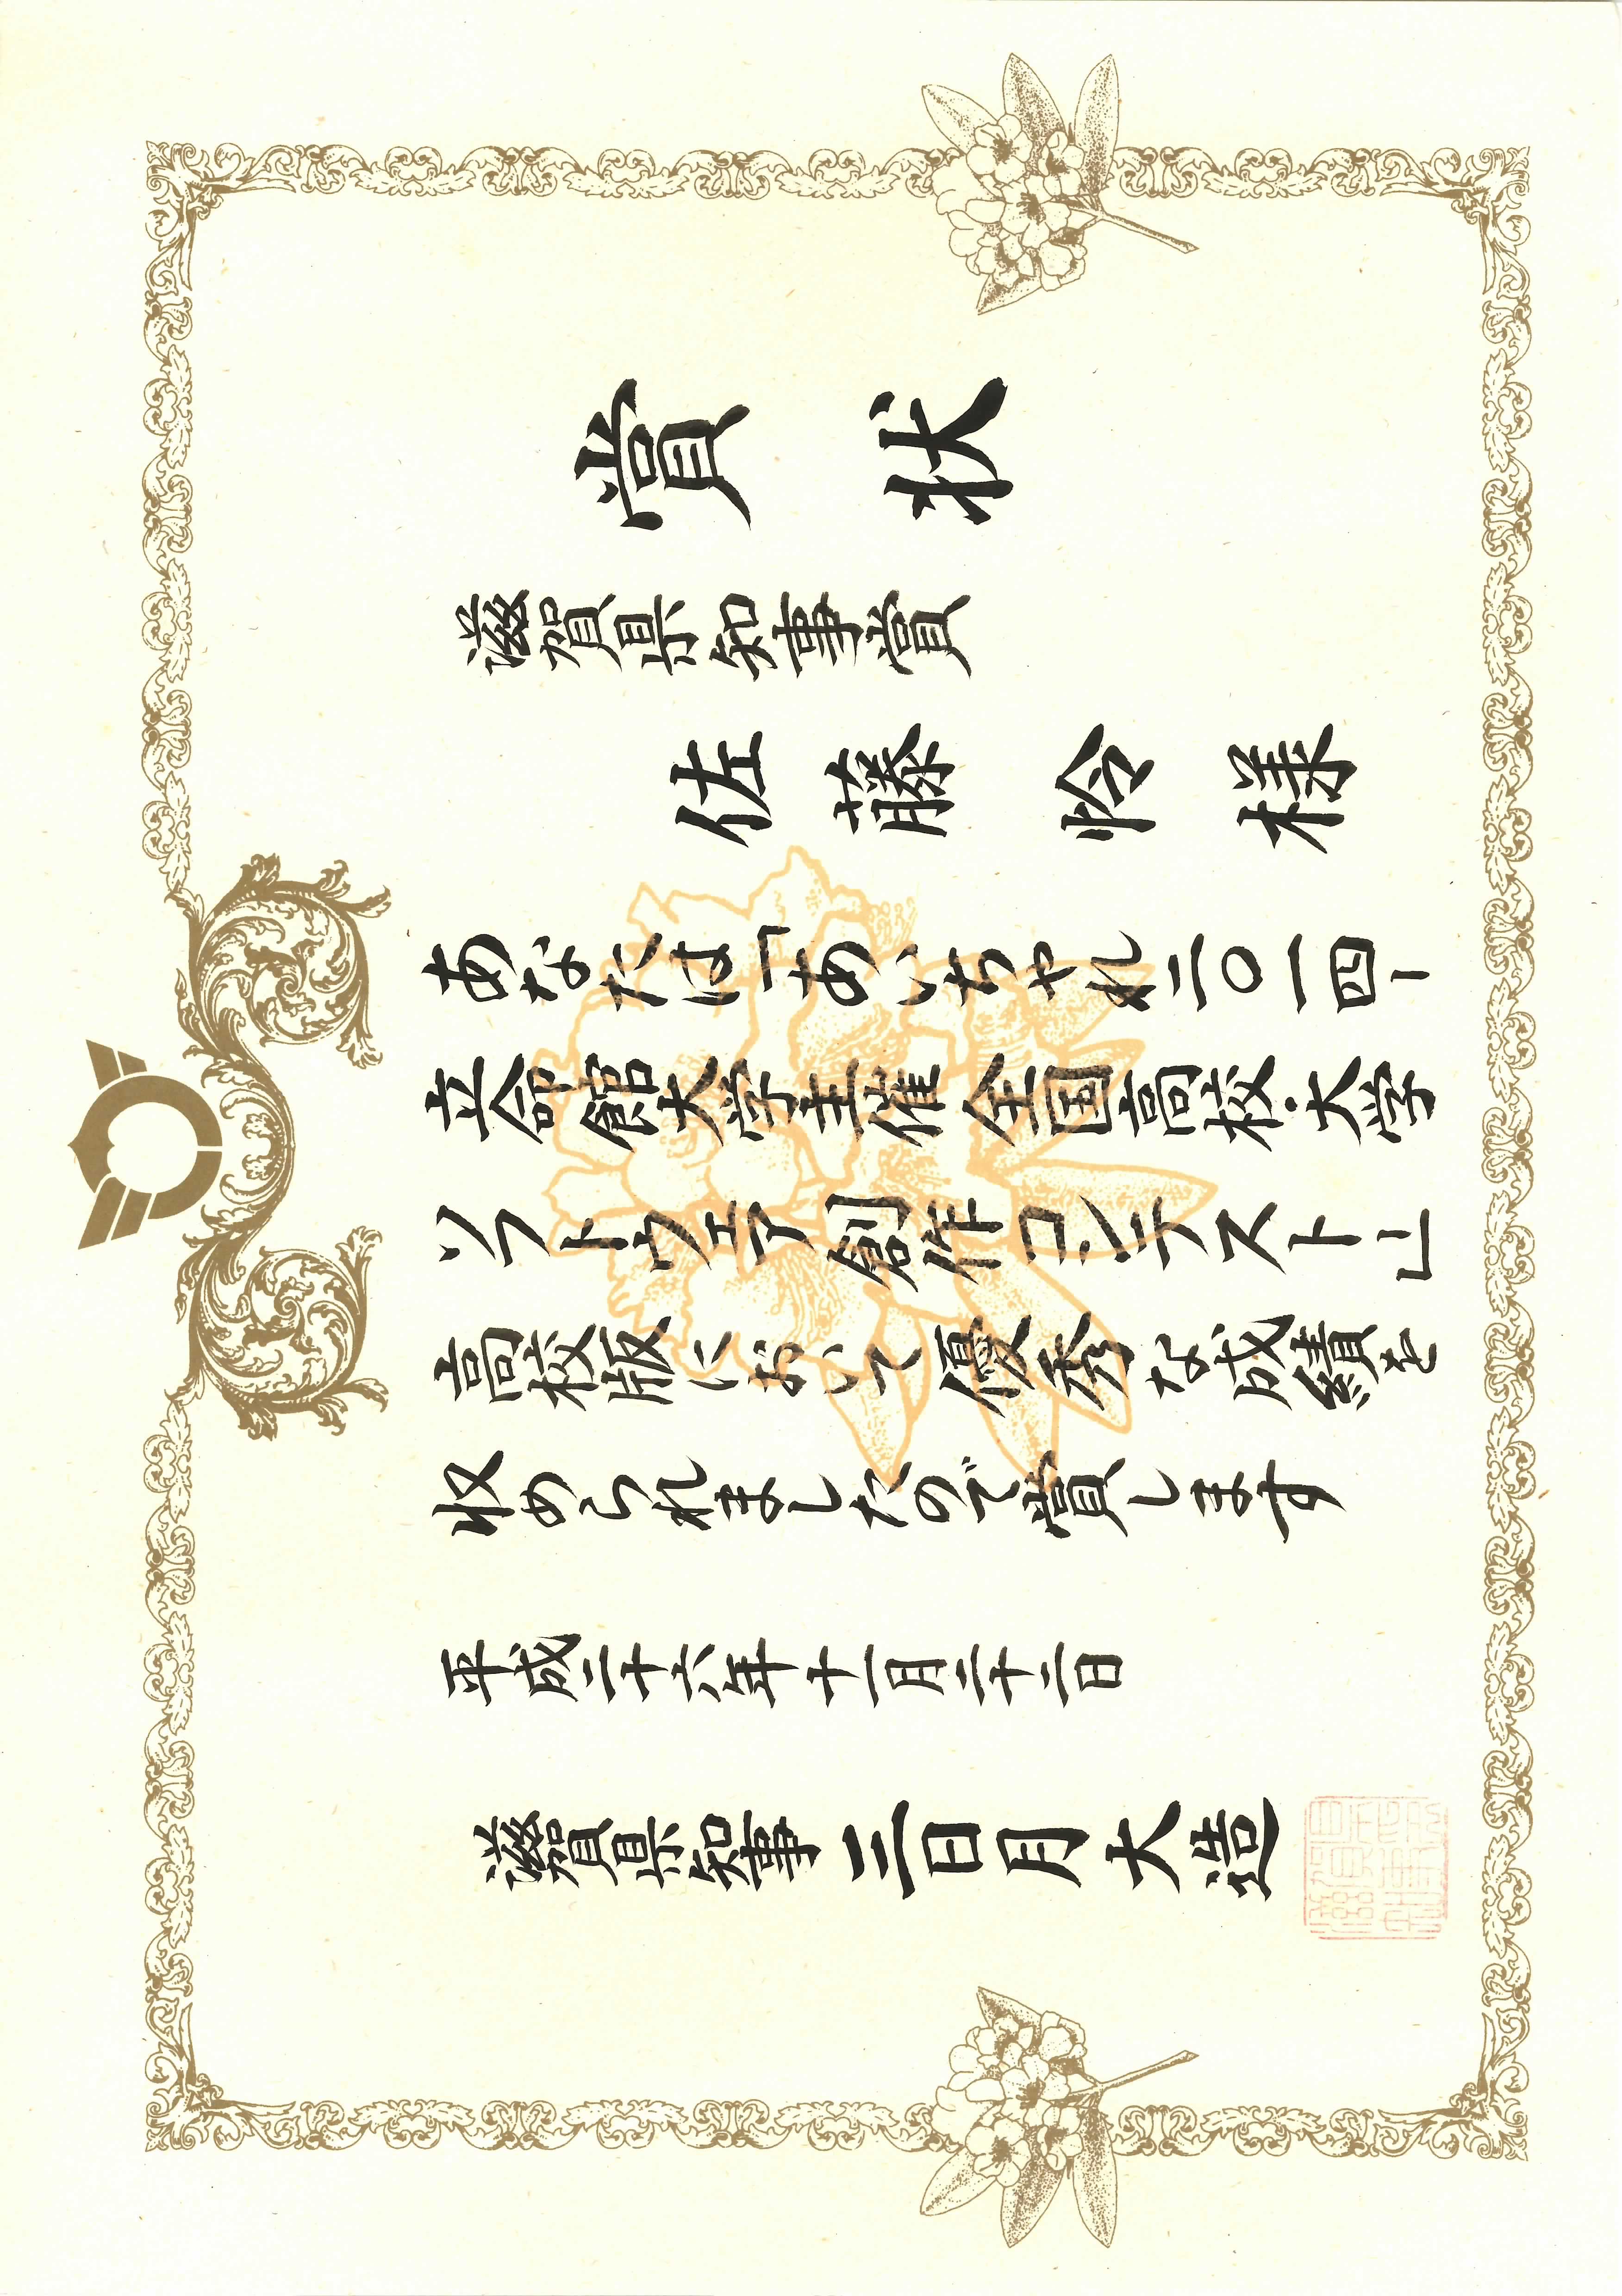 賞状
滋賀県知事賞
佐藤怜様
あなたは「あいちゃれ二〇一四ー
立命館大学主催全国高校・大学
ソフトウェア創作コンテスト」
高校版において優秀な成績を
収められましたので賞します
平成二十六年十一月二十二日
滋賀県知事 三日月大造